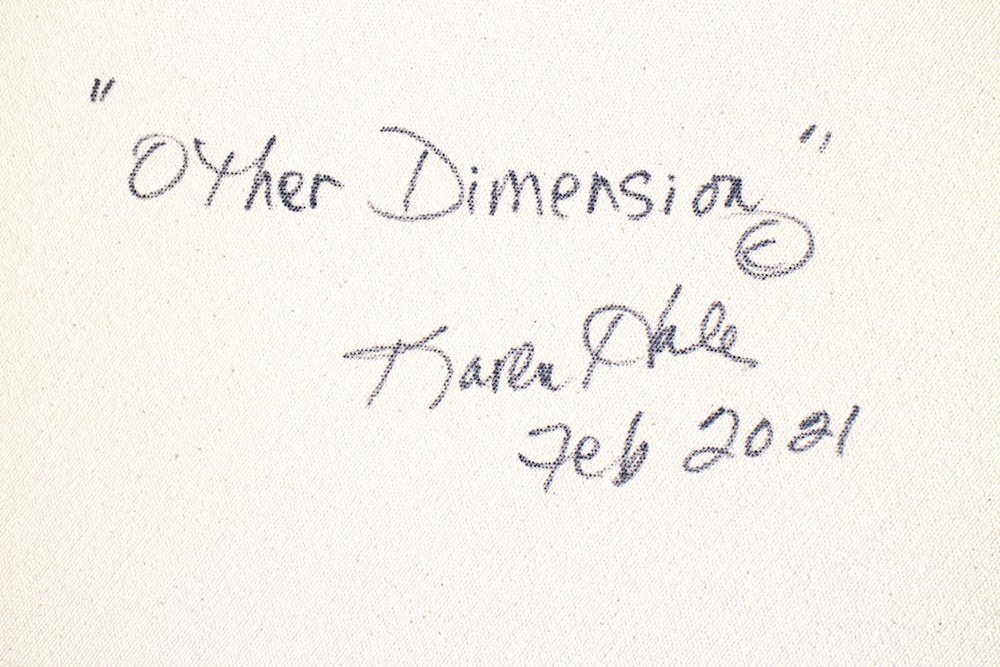 "Other Dimension"
©
Karen Hale
Feb 2021